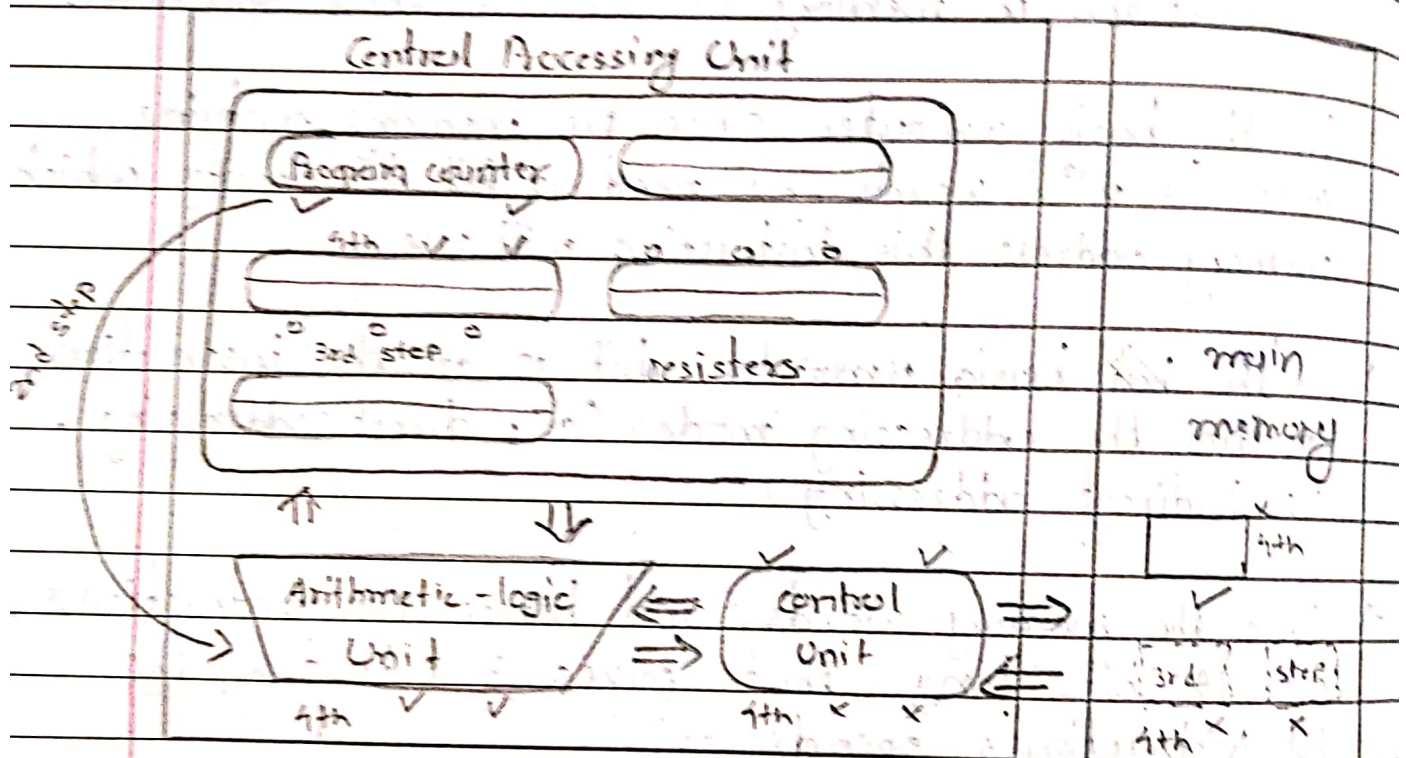 Central Accessing Unit
Program counter
4th
3rd step
resisters
main
memory
2nd step
4th
Arithmetic-logic
Unit
control
Unit
3rd step
4th
4th
4th